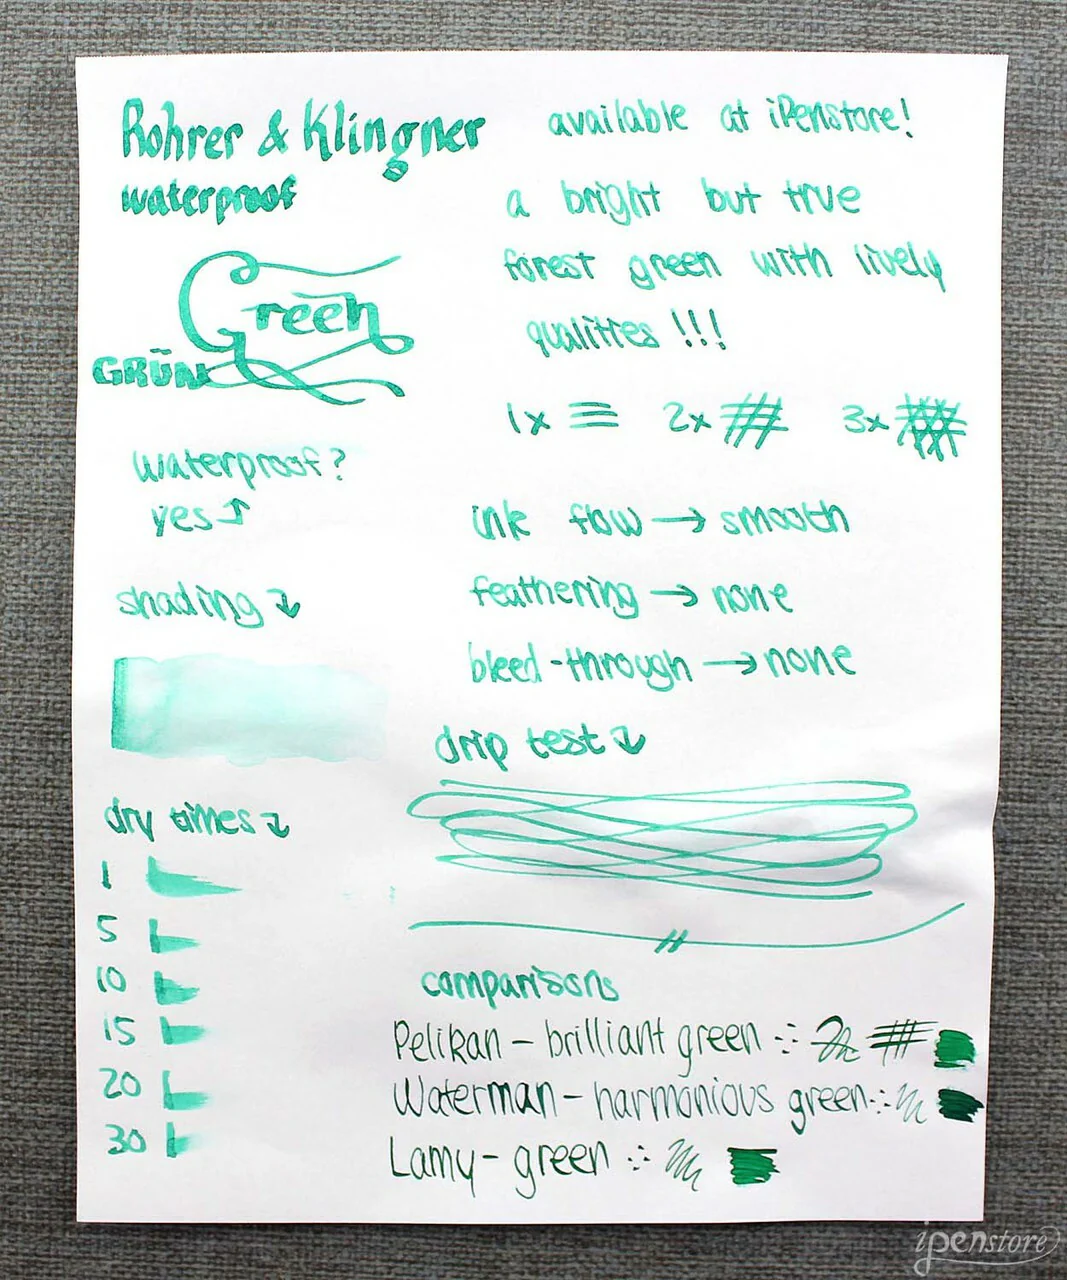 Rohrer & Klingner
waterproof
Green
GRÜN
available at iPenstore!
a bright but true
forest green with lively
qualities!!!
1x 2x 3x
waterproof?
yes
shading
dry times
1
5
10
15
20
30
ink flow → smooth
feathering → none
bleed-through → none
drip test
comparisons
Pelikan – brilliant green
Waterman – harmonious green
Lamy – green
ipenstore